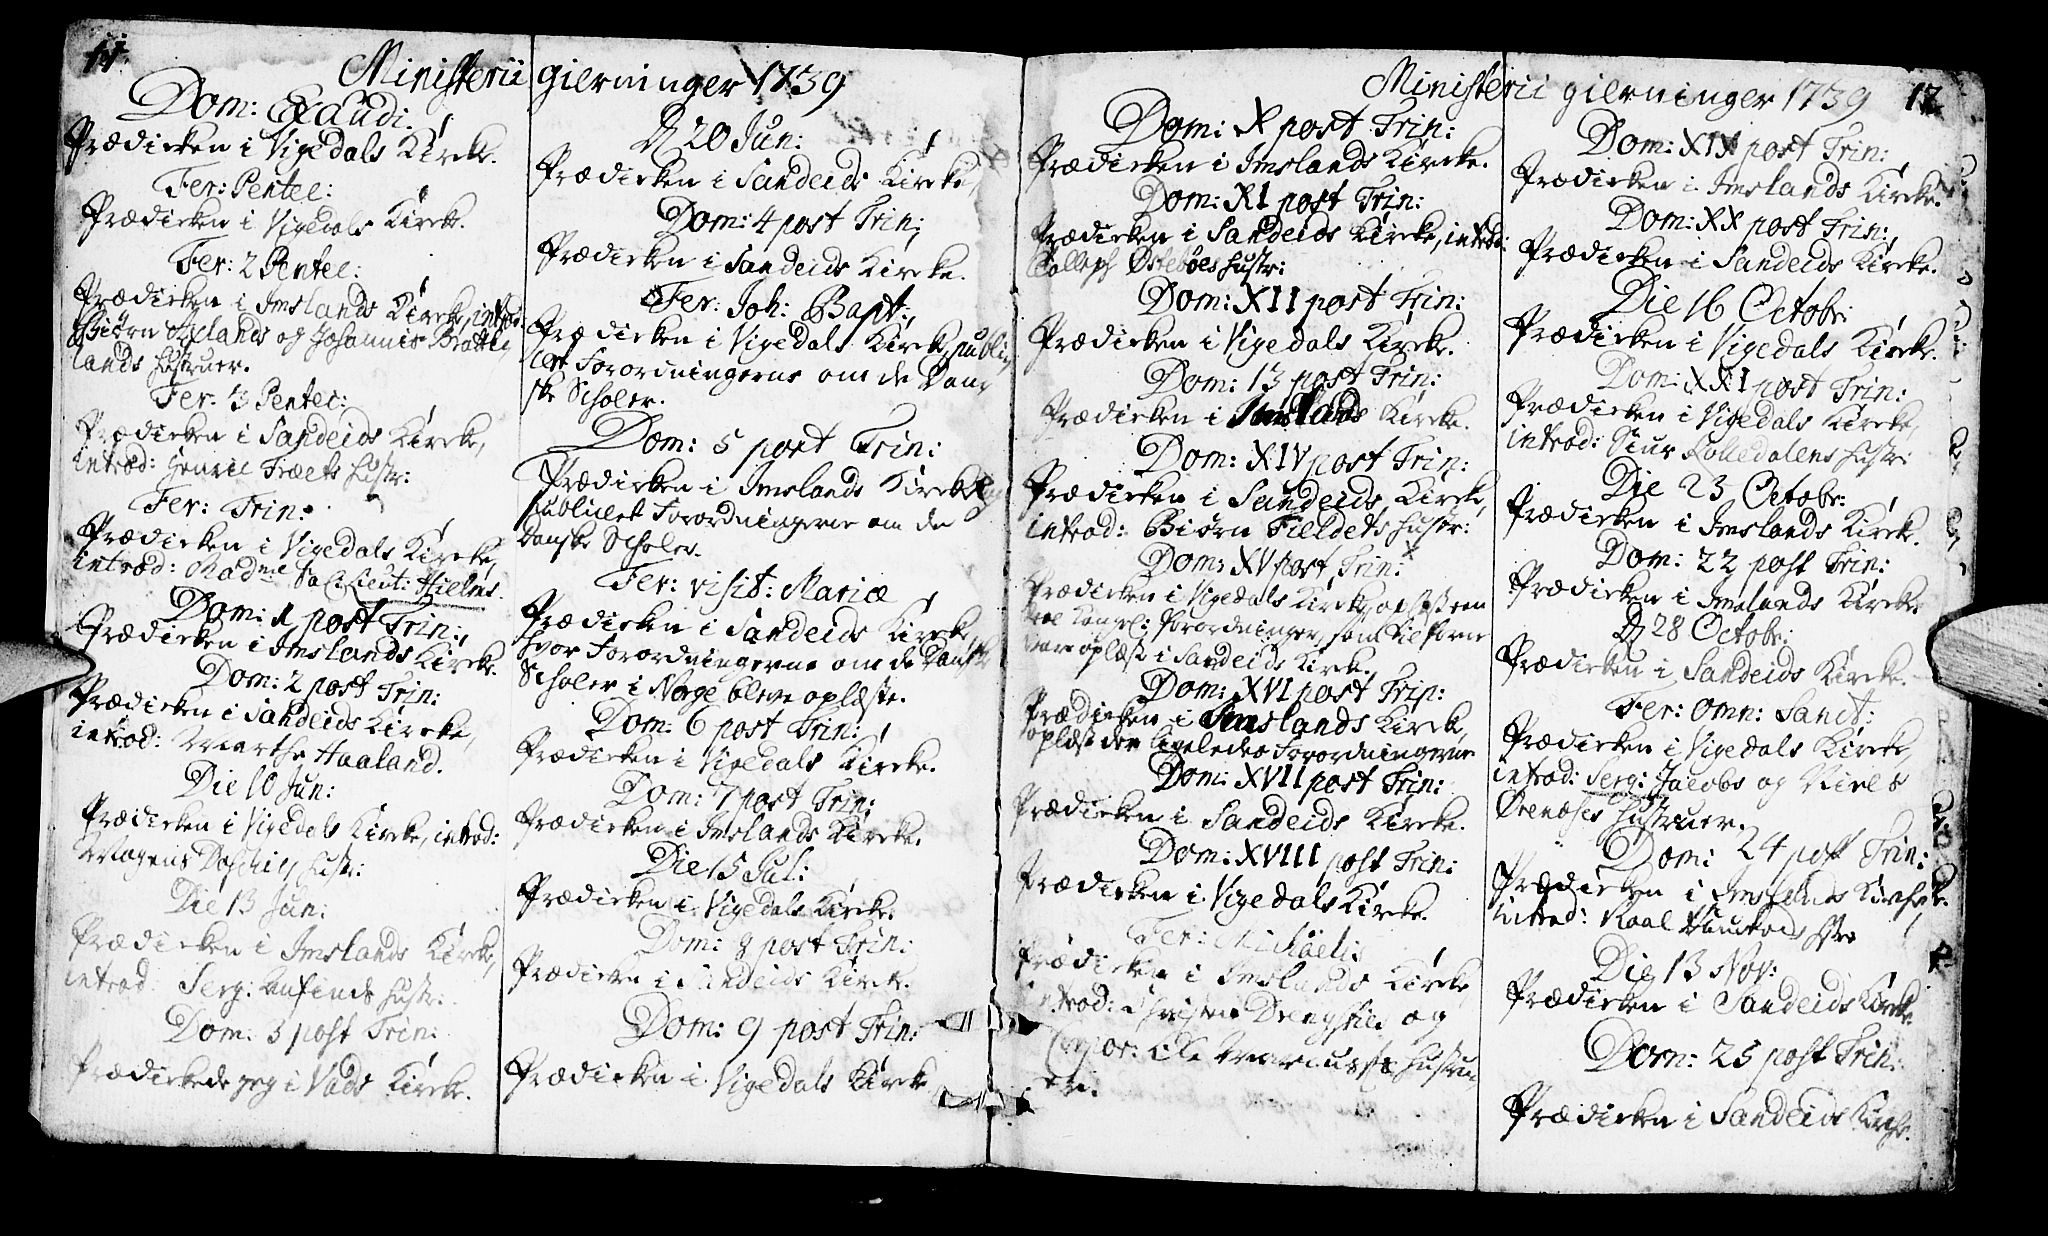 11.
Ministerii gierninger 1739
Dom: Exaudi.
Prædicken i Vigedals Kircke.
Fer: Pentec:
Prædicken i Vigedals Kircke.
Fer: 2 Pentec:
Prædicken i Imslands Kircke, introd:
Biörn og Johannis Bratte
lands Hustruer.
Fer. 3 Pentec:
Prædicken i Sandeids Kircke,
introd: Henric Træets Hustr:
Fer: Trin:
Prædicken i Vigedals Kircke,
introd: Madme Sal: Lieut: Hielms.
Dom: 1 post Trin:
Prædicken i Imslands Kircke.
Dom: 2 post Trin:
Prædicken i Sandeids Kircke,
introd: Marthe Haaland.
Die 10 Jun:
Prædicken i Vigedals Kircke, introd:
Mogens Hustr:
Die 13 Jun:
Prædicken i Imslands Kircke,
introd: Serg: Hustr:
Dom: 3 post Trin:
Prædickede jeg i Vads Kircke.
D 20 Jun:
Prædicken i Sandeids Kircke,
Dom: 4 post Trin:
Prædicken i Sandeids Kircke.
Fer: Joh: Bapt:
Prædicken i Vigedals Kircke, publi
cert Forordningerne om de Dan
ske Scholer.
Dom: 5 post Trin:
Prædicken i Imslands Kircke og
publicert Forordningerne om de
Danske Scholer.
Fer: visit: Mariæ
Prædicken i Sandeids Kircke,
hvor Forordningerne om de Danske
Scholer i Norge bleve oplæste.
Dom: 6 post Trin:
Prædicken i Vigedals Kircke.
Dom: 7 post Trin:
Prædicken i Imslands Kircke.
Die 15 Jul:
Prædicken i Vigedals Kircke.
Dom: 8 post Trin:
Prædicken i Sandeids Kircke.
Dom: 9 post Trin:
Prædicken i Vigedals Kircke
Ministerii gierninger 1739 12
Dom: X post Trin:
Prædicken i Imslands Kircke.
Dom: XI post Trin:
Prædicken i Sandeids Kircke, introd:
Östeböes Hustr:
Dom: XII post Trin:
Prædicken i Vigedals Kircke.
Dom: 13 post Trin:
Prædicken i Imslands Kircke.
Dom: XIV post Trin:
Prædicken i Sandeids Kircke,
introd: Biörn Fieldets Hustr:
Dom: XV post Trin:
Prædicken i Vigedals Kircke,
Kongel: Forordninger, som tilforne
vare oplæst i Sandeids Kircke.
Dom: XVI post Trin:
Prædicken i Imslands Kircke,
oplæst der ligeledes Forordningerne
Dom: XVII post Trin:
Prædicken i Sandeids Kircke.
Dom: XVIII post Trin:
Prædicken i Vigedals Kircke.
Fer: Michaelis
Prædicken i Imslands Kircke
introd: og
Corpor: Ole Hustru
er.
Dom: XIX post Trin:
Prædicken i Imslands Kircke.
Dom: XX post Trin:
Prædicken i Sandeids Kircke.
Die 16 Octobr:
Prædicken i Vigedals Kircke.
Dom: XXI post Trin:
Prædicken i Vigedals Kircke,
introd: Siur Hustr:
Die 23 Octobr:
Prædicken i Imslands Kircke.
Dom: 22 post Trin:
Prædicken i Imslands Kircke
D 28 Octobr:
Prædicken i Sandeids Kircke.
Fer: Omn: Sanct:
Prædicken i Vigedals Kircke,
introd: Serg: Jacobs og Niels
Hustruer.
Dom: 24 post Trin:
Prædicken i Imslands Kircke.
introd:
Die 13 Nov:
Prædicken i Sandeids Kircke.
Dom: 25 post Trin:
Prædicken i Sandeids Kircke.